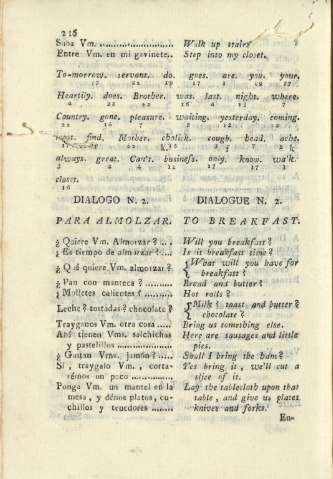 216
Suba Vm. .......................... Walk up stairs
Entre Vm. en mi gavinete.. Step into my closet.
To-morrow. servant. do. goes. are. you. your.
Heartily. does. Brother. was. last. night. where.
Country. gone. pleasure. waiting. yesterday. coming.
find. Mother. cholick. cough. head. ache.
always. great. Can't. business. only. know. walk.
closet.
16
DIALOGO N. 2. DIALOGUE N. 2.
PARA ALMOLZAR. TO BREAKFAST.
¿ Quiere Vm. Almorzar ? ... Will you breakfast ?
¿ Es tiempo de almorzar ? .... Is it breakfast time ?
¿ Qué quiere Vm. almorzar ? What will you have for breakfast ?
¿ Pan con manteca ? ........... Bread and butter ?
¿ Molletes calientes ? .......... Hot rolls ?
Leche ? tostadas ? chocolate ? Milk ? toast and butter ? chocolate ?
Traygamos Vm. otra cosa ..... Bring us something else.
Ahí tienen Vms. salchichas Here are sausages and little
y pastelillos .................... pies.
¿ Gustan Vms. jamón ? ...... Shall I bring the ham ?
Sí , traygalo Vm. , corta- Yes bring it , we'll cut a
rémos un poco ............... slice of it.
Ponga Vm. un mantel en la Lay the tablecloth upon that
mesa , y dénos platos, cu- table , and give us plates
chillos y tenedores ....... knives and forks.
En-